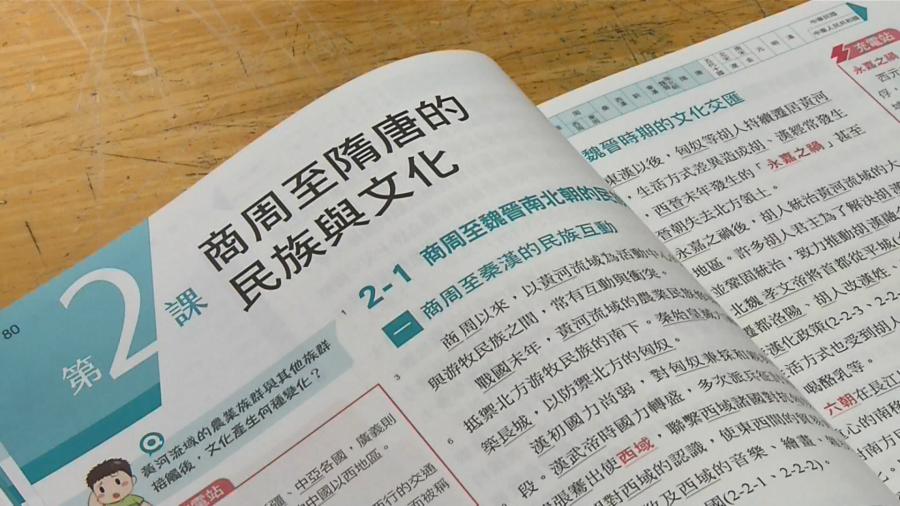 80
第2課
商周至隋唐的
民族與文化
黃河流域的農業族群與其他族群
接觸後，文化產生何種變化？
2-1 商周至魏晉南北朝的民
一 商周至秦漢的民族互動
商周以來，以黃河流域為活動中心
與游牧民族之間，常有互動與衝突。
戰國末年，黃河流域的農業民族
抵禦北方游牧民族的南下。秦始皇
築長城，以防禦北方的匈奴。
漢初國力尚弱，對匈奴兼採和
段。漢武帝時國力轉盛，多次派兵
張騫出使西域，聯繫西域諸國對抗
對西域的認識，使東西間的貿易
及西域的音樂、繪畫、
國(2-2-1、2-2-2)。
1
3
6
充電站
、中亞各國，廣義則
中國以西地區。
西行的交通
而被稱
中華民國
中華人民共和國
魏晉時期的文化交匯
東漢以後，匈奴等胡人持續遷居黃河
，生活方式差異造成胡、漢經常發生
，西晉末年發生的「永嘉之禍」甚至
晉朝失去北方領土。
永嘉之禍後，胡人統治黃河流域的大
地區。許多胡人君主為了解決胡漢
並鞏固統治，致力推動胡漢融
北魏孝文帝將首都從平城(
都洛陽、胡人改漢姓、
漢化政策(2-2-3、2-2-
生活方式也受到胡人
喝酪乳等。
六朝在長江
心的南移
對南方
充電站
永嘉之禍
西元
俘，